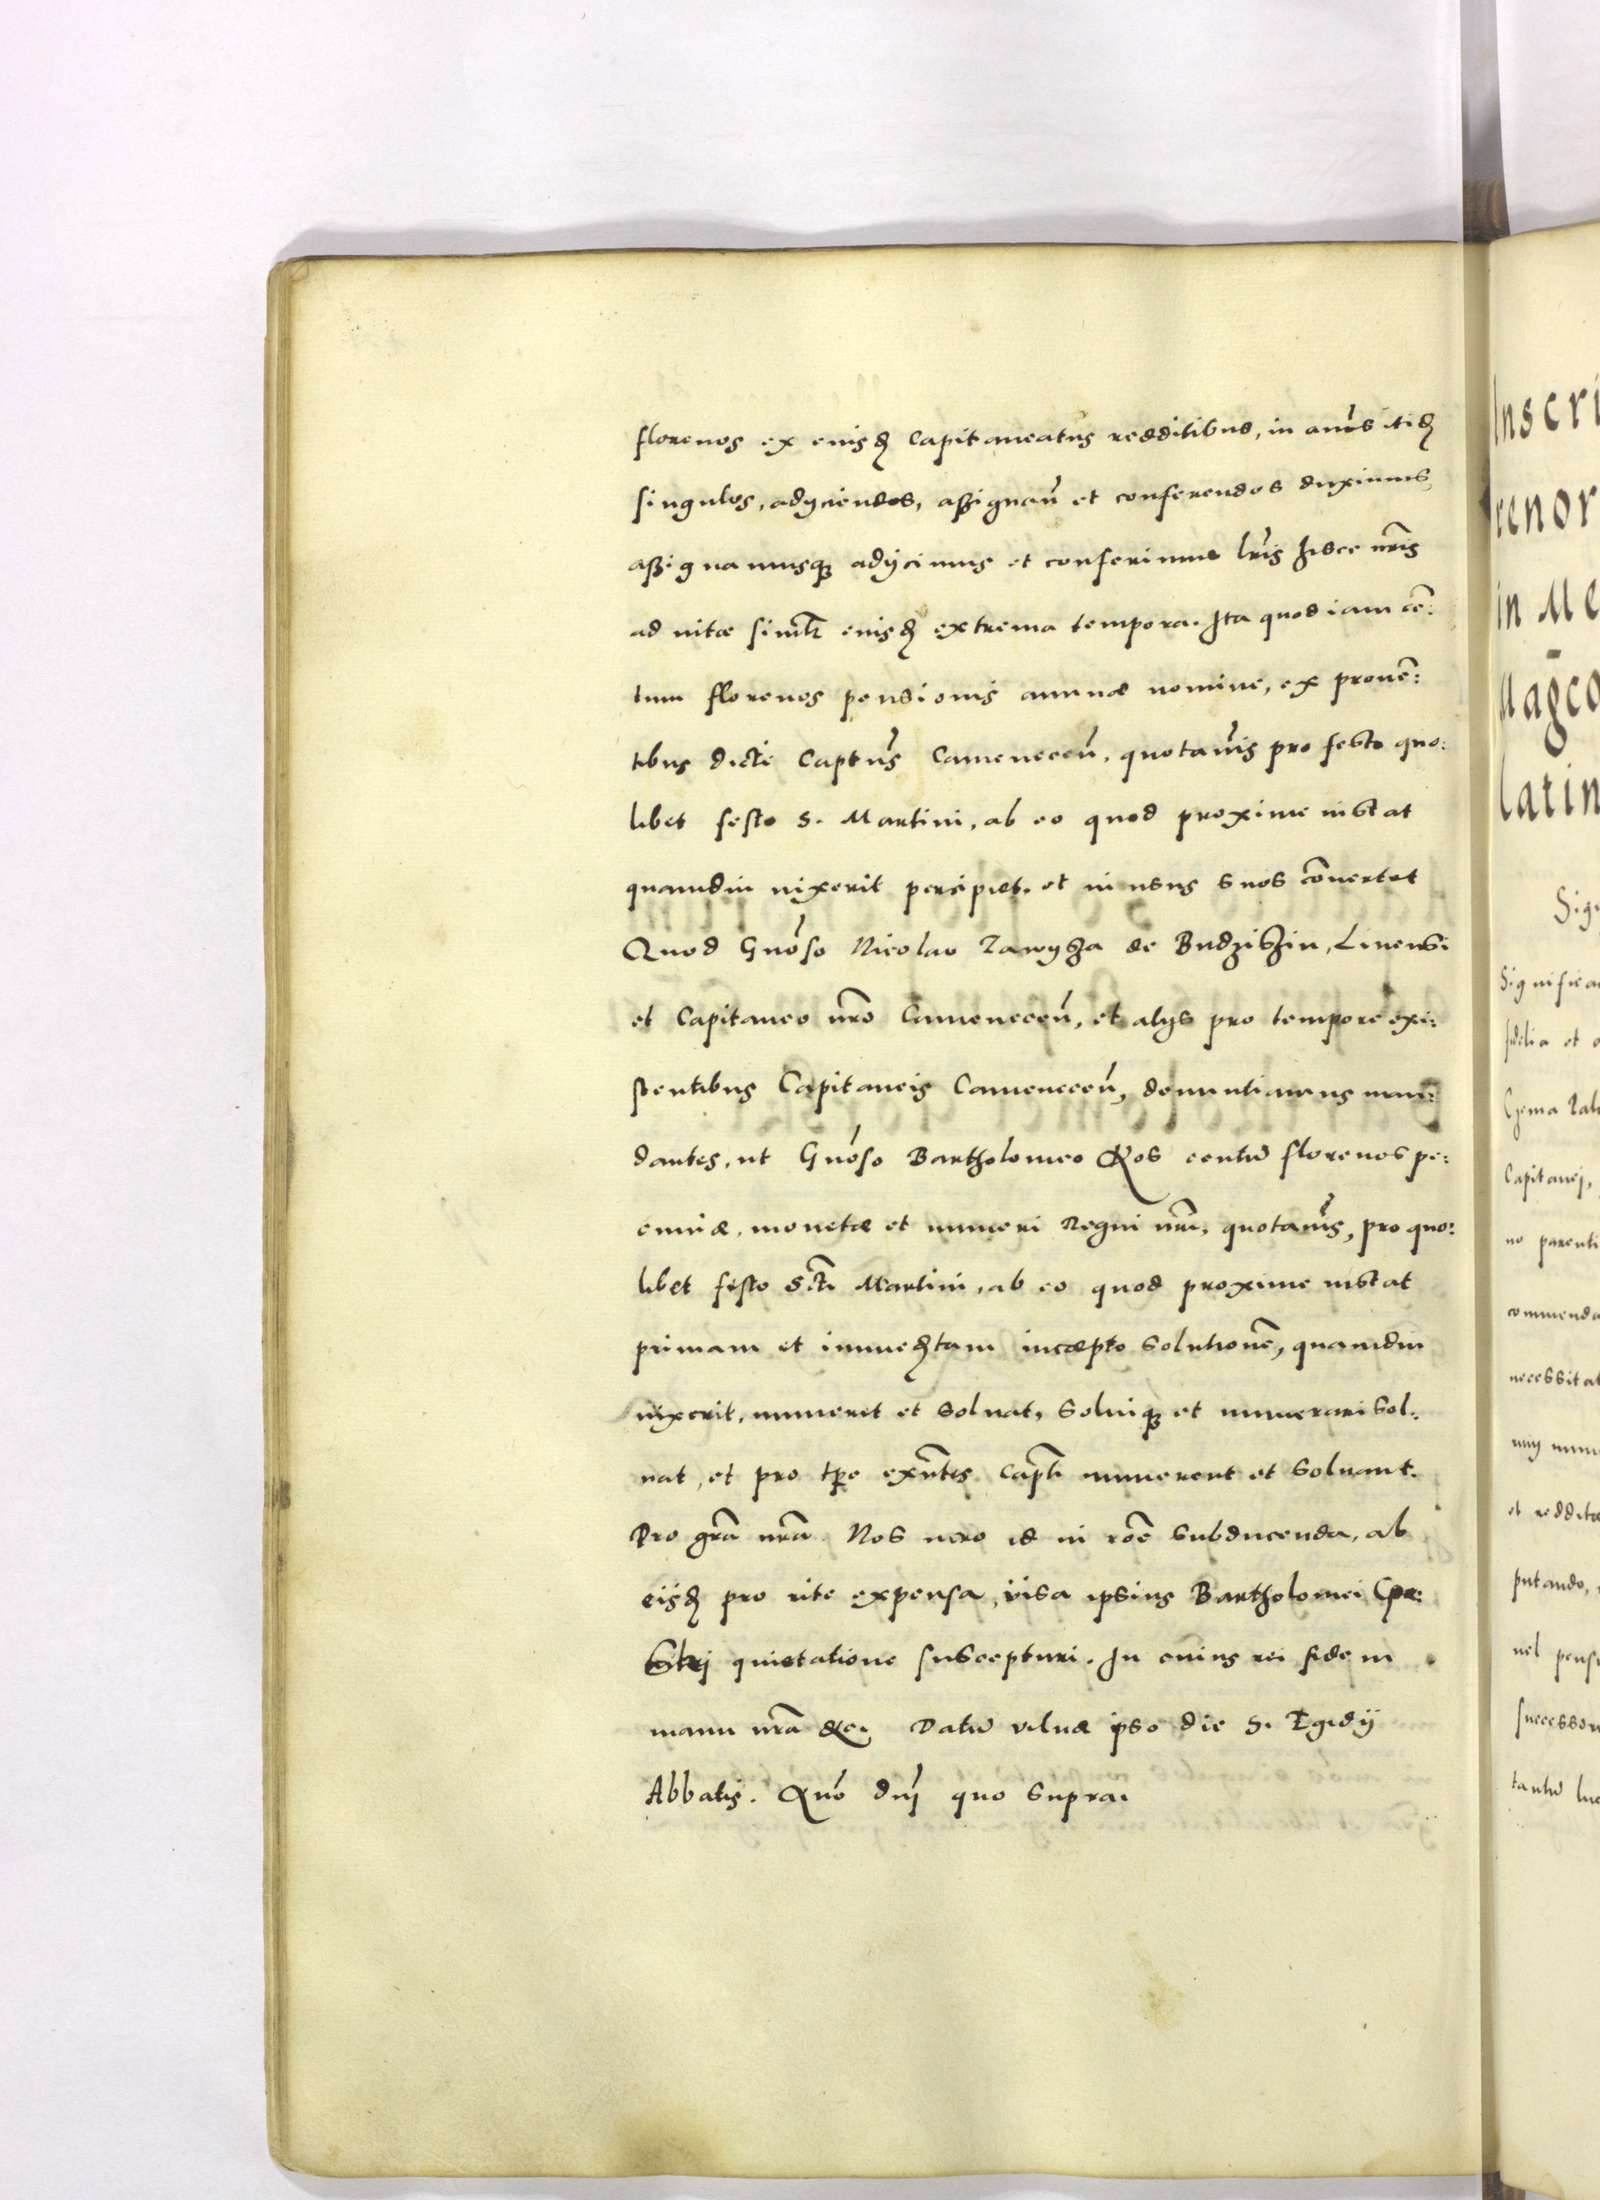 florenos ex eiusd Capitaneatus redditibus, in annōs itid
singulos, adyciendos, assignan̄ et conferendos duximus,
assignamusq adijcimus et conferimus lr̄is hisce nr̄is
ad uitæ siml̄r eiusd extrema tempora. Ita quod iam cē:
tum florenos pensionis annuæ nomine, ex prouē:
tibus dicti Captūs Camenecen̄, quotan̄is pro festo quo:
libet festo S. Martini, ab eo quod proxime instat
quamdiu uixerit percipiet. et in usus suos cōuertet
Quod Gnōso Nicolao
et Capitaneo nr̄o Camenecen̄, et alijs pro tempore exi:
stentibus Capitaneis Camenecen̄, denuntiamus man:
dantes, ut Gnōso Bartholomeo hos centū florenos pe:
cuniæ, monetæ et numeri Regni nr̄i, quotan̄is, pro quo:
libet festo Scti Martini, ab eo quod proxime instat
primam et immedtam incæpto solutionē, quamdiu
uixerit, numeret et soluat, soluiq et numerari sol:
uat, et pro tpe exn̄tes Capti numerent et soluant.
Pro gr̄a nr̄a. Nos uero id in rōe subducenda, ab
eisd pro rite expensa, uisa ipsius Bartholomei
quietatione suscepturi. In cuius rei fidem
manu nr̄a &c. Datū Vilnæ ipso die S. Egidij
Abbatis. Quō dnj quo supra.
Inscri
renor
in Me
Maḡco
latin
Significa
fidelia et
Capitanej,
no parenti
commenda
necessitat
et reddita
putando,
uel pens
successor
tantū